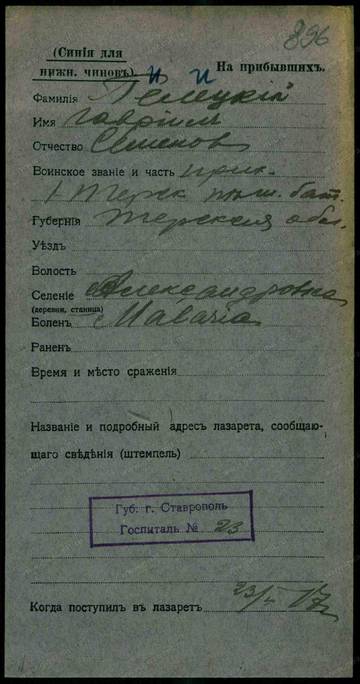 896
(Синія для
нижн. чиновъ).
На прибывшихъ.
Фамилія
Имя Гавріил
Отчество Семенов
Воинское званіе и часть прик.
1 Терск. плас. бат.
Губернія Терская обл.
Уѣздъ
Волость
Селеніе Александровка
(деревня, станица)
Боленъ Малярія
Раненъ
Время и мѣсто сраженія
Названіе и подробный адресъ лазарета, сообщаю-
щаго свѣдѣнія (штемпель)
Губ. г. Ставрополь
Госпиталь № 23
Когда поступилъ въ лазаретъ 17